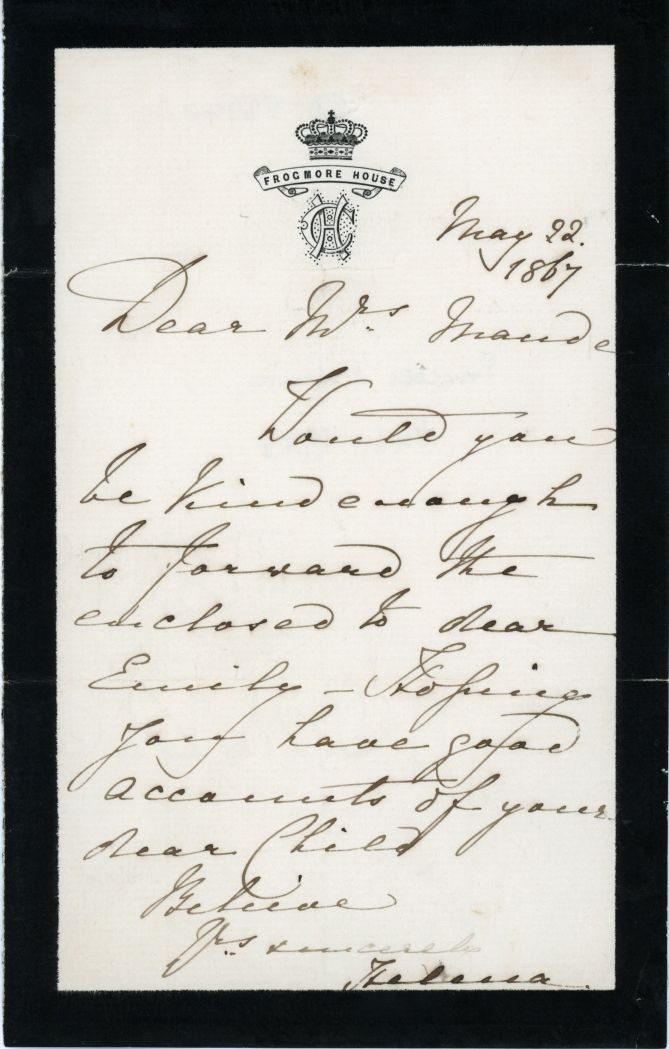 FROGMORE HOUSE
May 22.
1867
Dear Mrs Maude
Would you
be kind enough
to forward the
enclosed to dear
Emily – Hoping
you have good
accounts of your
dear Child
Believe
Yrs sincerely
Helena.